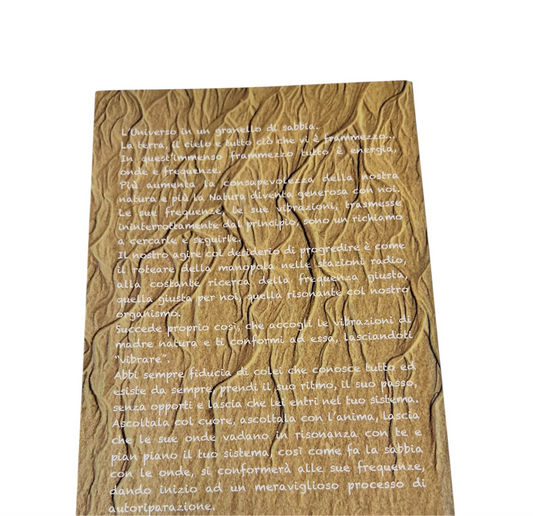 L'Universo in un granello di sabbia.
La terra, il cielo e tutto ciò che vi è frammezzo...
In quest'immenso frammezzo tutto è energia,
onde e frequenze.
Più aumenta la consapevolezza della nostra
natura e più la Natura diventa generosa con noi.
Le sue frequenze, le sue vibrazioni, trasmesse
ininterrottamente dal principio, sono un richiamo
a cercarle e seguirle.
Il nostro agire col desiderio di progredire è come
il roteare della manopola nelle stazioni radio,
alla costante ricerca della frequenza giusta,
quella giusta per noi, quella risonante col nostro
organismo.
Succede proprio così, che accogli le vibrazioni di
madre natura e ti conformi ad essa, lasciandoti
"vibrare".
Abbi sempre fiducia di colei che conosce tutto ed
esiste da sempre, prendi il suo ritmo, il suo passo,
senza opporti e lascia che lei entri nel tuo sistema.
Ascoltala col cuore, ascoltala con l'anima, lascia
che le sue onde vadano in risonanza con te e
pian piano il tuo sistema, così come fa la sabbia
con le onde, si conformerà alle sue frequenze,
dando inizio ad un meraviglioso processo di
autoriparazione.